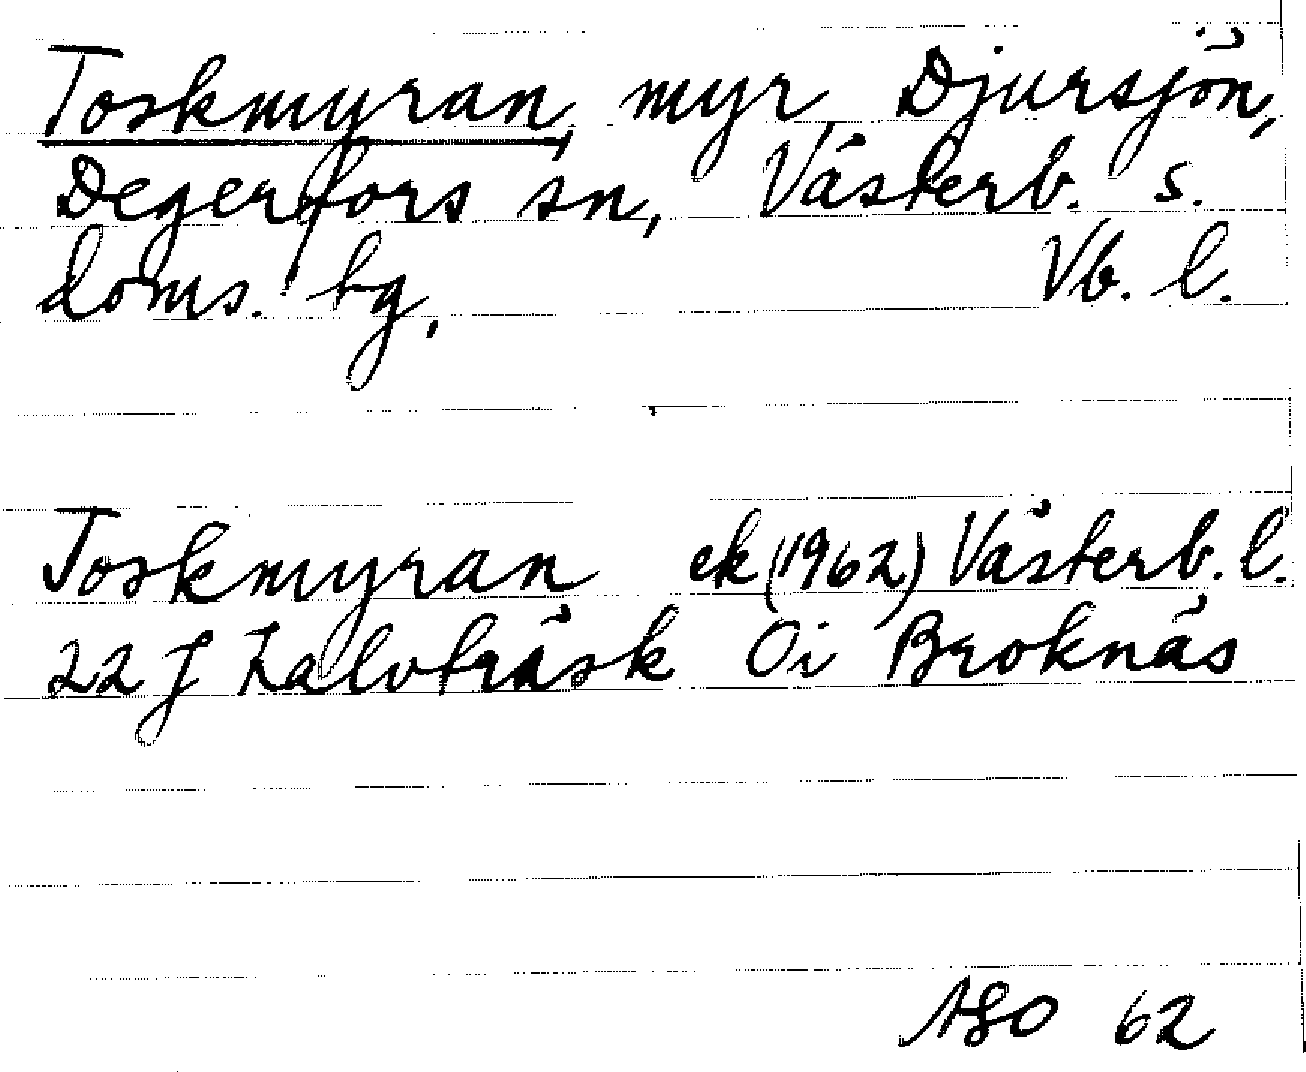 Toskmyran, myr, Djursjön,
Degerfors sn, Västerb. s.
doms. hg, Vb. l.
Toskmyran ek (1962) Västerb. l.
22 J Kalvträsk Oi Broknäs
ASO 62